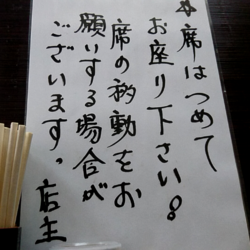 ※席はつめて
お座り下さい!
席の移動をお
願いする場合が
ございます。店主